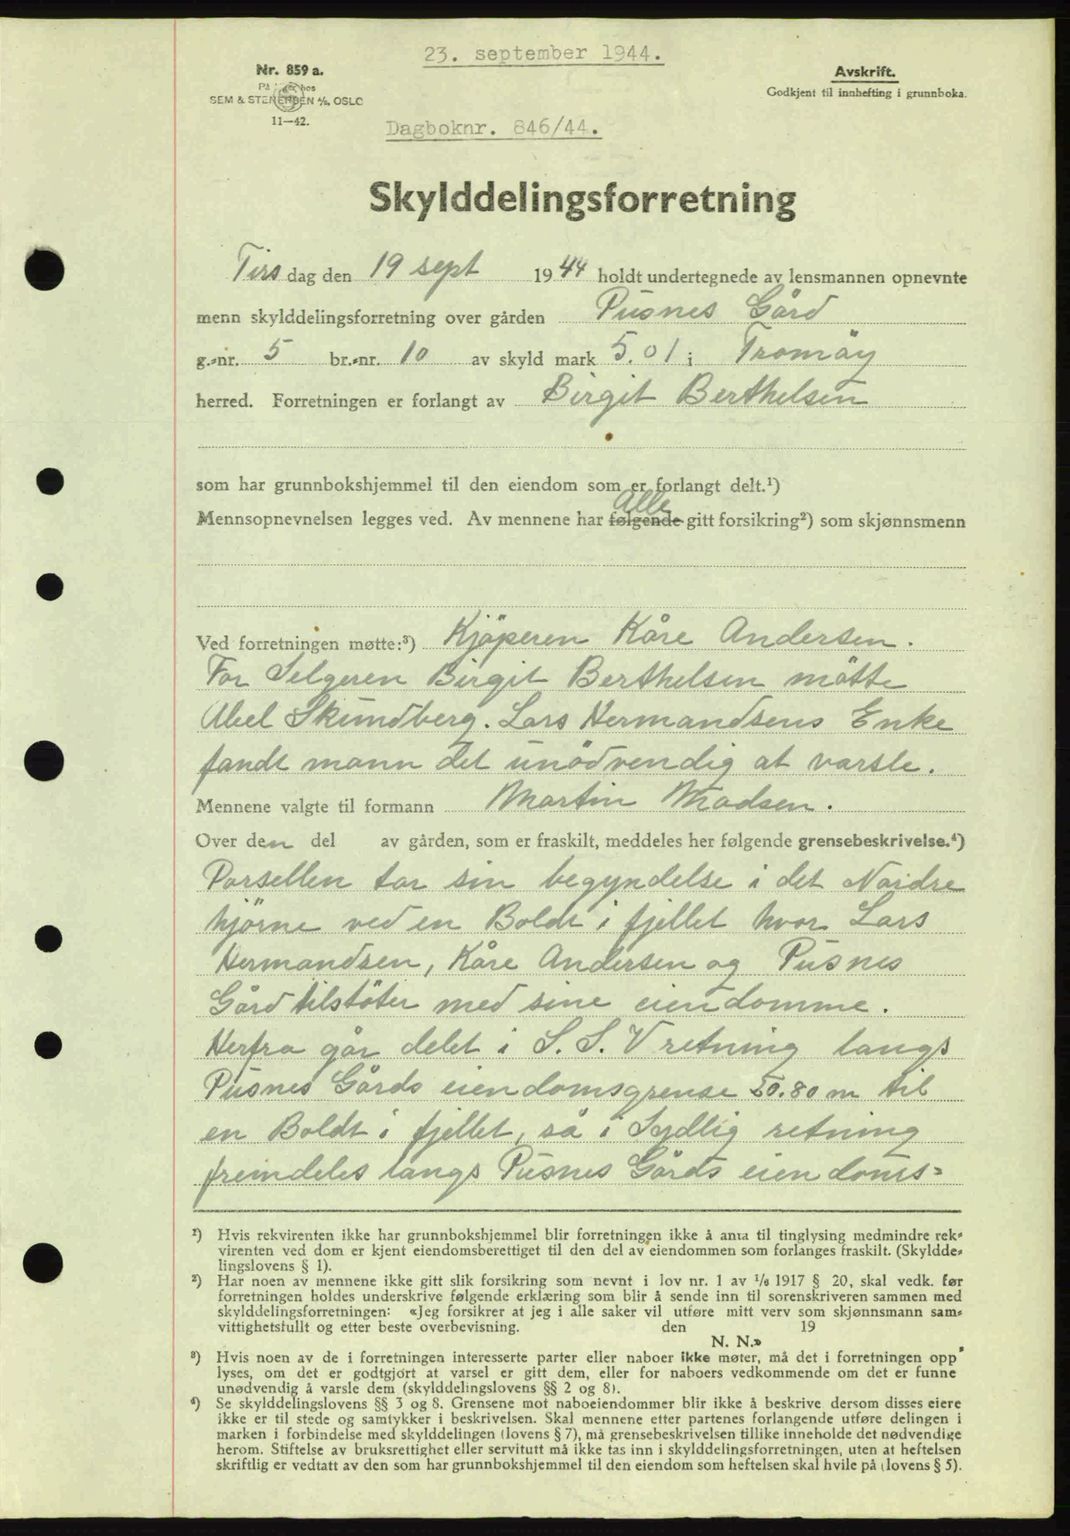 23. september 1944.
Nr. 859 a.
Avskrift.
SEM & STENERSEN A/S, OSLO
Godkjent til innhefting i grunnboka.
11—42.
Dagboknr. 846/44.
Skylddelingsforretning
Tirsdag den 19 sept 1944 holdt undertegnede av lensmannen opnevnte
menn skylddelingsforretning over gården Pusnes Gård
g.-nr. 5 br.-nr. 10 av skyld mark 5.01 i Tromöy
herred. Forretningen er forlangt av Birgit Berthelsen
som har grunnbokshjemmel til den eiendom som er forlangt delt.¹)
Alle
Mennsopnevnelsen legges ved. Av mennene har følgende gitt forsikring²) som skjønnsmenn
Ved forretningen møtte:³) Kjöperen Kåre Andersen.
For Selgeren Birgit Berthelsen mötte
Abel Skundberg. Lars Hermandsens Enke
fandt mann det unödvendig at varsle.
Mennene valgte til formann Martin Madsen.
Over den del av gården, som er fraskilt, meddeles her følgende grensebeskrivelse.⁴)
Parsellen tar sin begyndelse i det Nordre
hjörne ved en Boldt i fjellet hvor Lars
Hermandsen, Kåre Andersen og Pusnes
Gård tilstöter med sine eiendomme.
Herfra går delet i S. S. V retning langs
Pusnes Gårds eiendomsgrense 50.80 m til
en Boldt i fjellet, så i Sydlig retning
fremdeles langs Pusnes Gårds eiendoms=
¹) Hvis rekvirenten ikke har grunnbokshjemmel blir forretningen ikke å anta til tinglysing medmindre rek-
virenten ved dom er kjent eiendomsberettiget til den del av eiendommen som forlanges fraskilt. (Skyldde-
lingslovens § 1).
²) Har noen av mennene ikke gitt slik forsikring som nevnt i lov nr. 1 av 1/6 1917 § 20, skal vedk. før
forretningen holdes underskrive følgende erklæring som blir å sende inn til sorenskriveren sammen med
skylddelingsforretningen: «Jeg forsikrer at jeg i alle saker vil utføre mitt verv som skjønnsmann sam-
vittighetsfullt og etter beste overbevisning. den 19
N. N.»
³) Hvis noen av de i forretningen interesserte parter eller naboer ikke møter, må det i forretningen opp-
lyses, om det er godtgjort at varsel er gitt dem, eller for naboers vedkommende om det er funne
unødvendig å varsle dem (skylddelingslovens §§ 2 og 8).
⁴) Se skylddelingslovens §§ 3 og 8. Grensene mot naboeiendommer blir ikke å beskrive dersom disses eiere
ikke er til stede og samtykker i beskrivelsen. Skal mennene etter partenes forlangende utføre delingen i
marken i forbindelse med skylddelingen (lovens § 7), må grensebeskrivelsen tillike inneholde det nødvendige
herom. Stiftelse av bruksrettighet eller servitutt må ikke tas inn i skylddelingsforretningen, uten at heftelsen
skriftlig er vedtatt av den som har grunnbokshjemmel til den eiendom som heftelsen skal hvile på (lovens § 5).